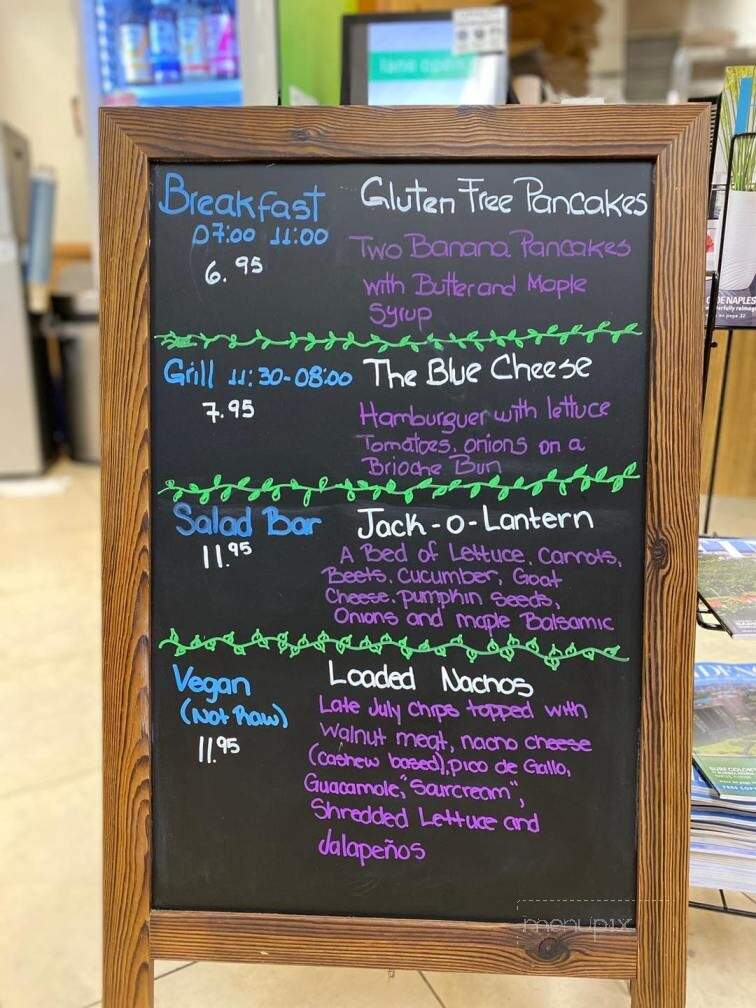 lane open
Breakfast
07:00 11:00
6.95
Gluten Free Pancakes
Two Banana Pancakes
with Butter and Maple
Syrup
Grill 11:30-08:00
7.95
The Blue Cheese
Hamburguer with lettuce
Tomatoes, onions on a
Brioche Bun
Salad Bar
11.95
Jack-o-Lantern
A Bed of Lettuce, Carrots,
Beets, Cucumber, Goat
Cheese, pumpkin seeds,
Onions and maple Balsamic
Vegan
(Not Raw)
11.95
Loaded Nachos
Late July chips topped with
walnut meat, nacho cheese
(cashew based), pico de Gallo,
Guacamole, "Sourcream",
Shredded Lettuce and
Jalapeños
menupix
DE NAPLES